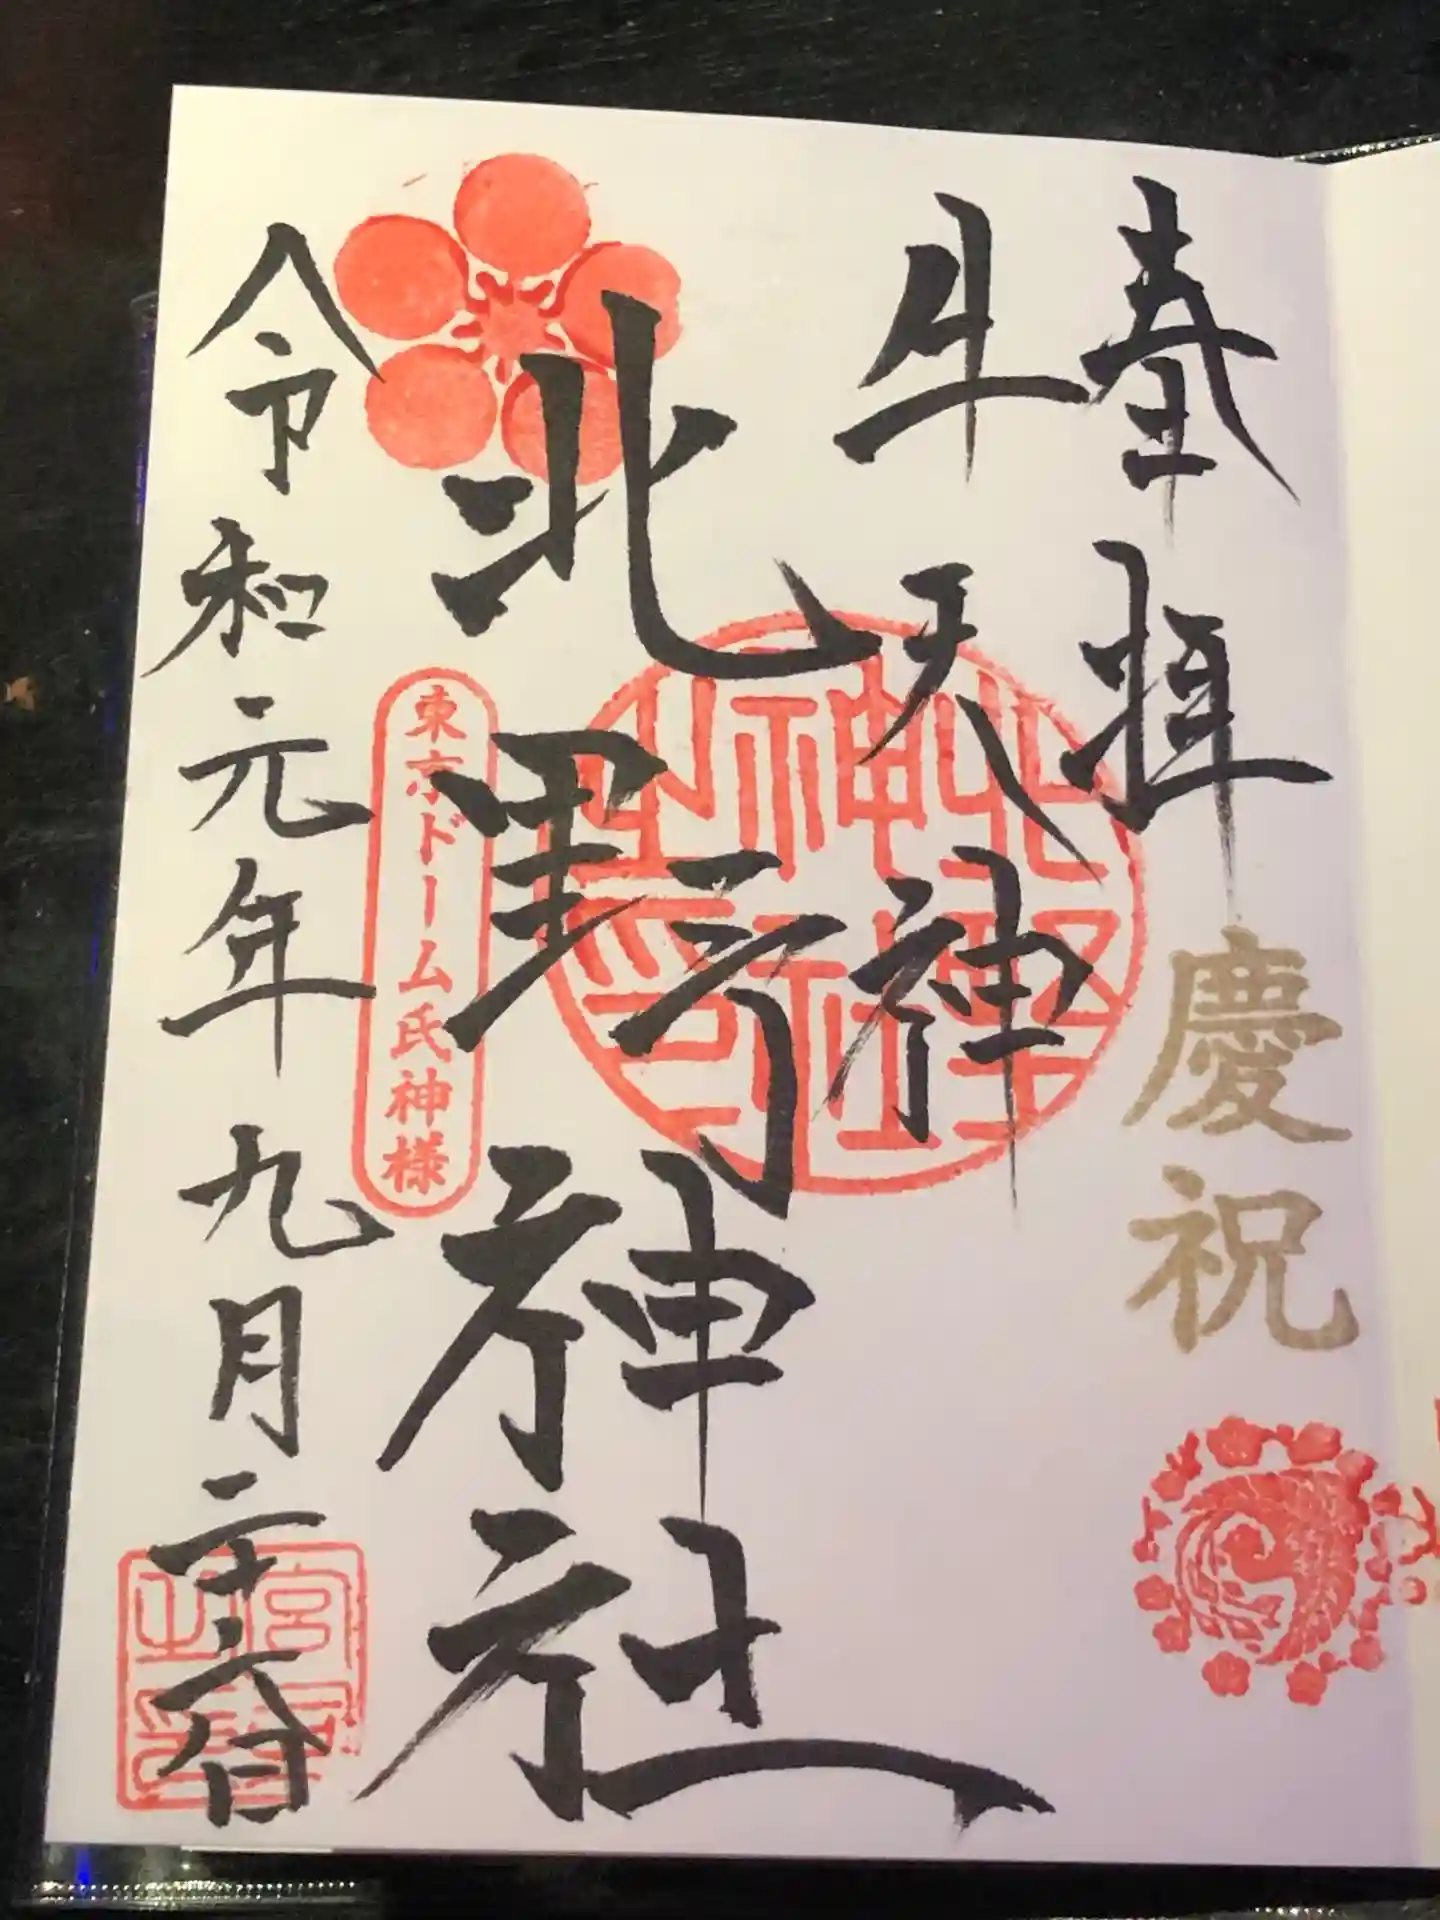 奉拝
慶祝
牛天神
北野神社
北野神社印
東京ドーム氏神様
令和元年九月二十六日